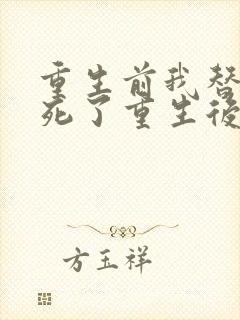 重生前我替
死了重生後
方玉祥